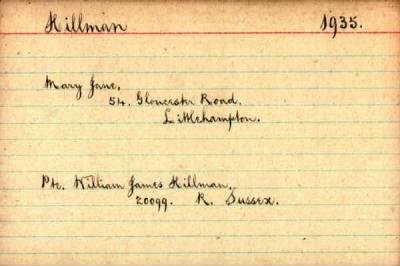 Hillman 1935.
Mary Jane,
54. Gloucester Road,
Littlehampton.
Pte. William James Hillman,
20099. R. Sussex.